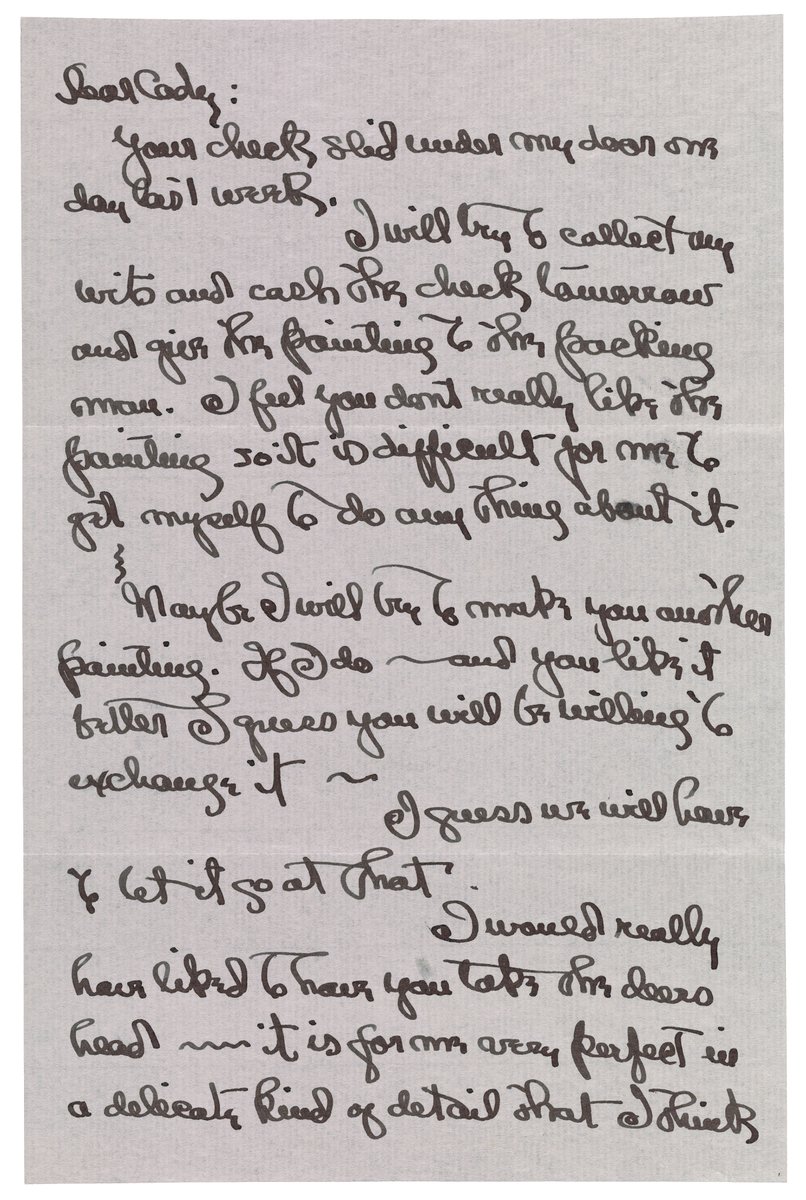 Dear Cady:
Your check slid under my door one
day last week.
I will try to collect my
wits and cash the check tomorrow
and give the painting to the packing
man. I feel you dont really like the
painting so it is difficult for me to
get myself to do any thing about it.
Maybe I will try to make you another
painting. If I do — and you like it
better I guess you will be willing to
exchange it ~
I guess we will have
to let it go at that.
I would really
have liked to have you take the deers
head ~~ it is for me very perfect in
a delicate kind of detail that I think